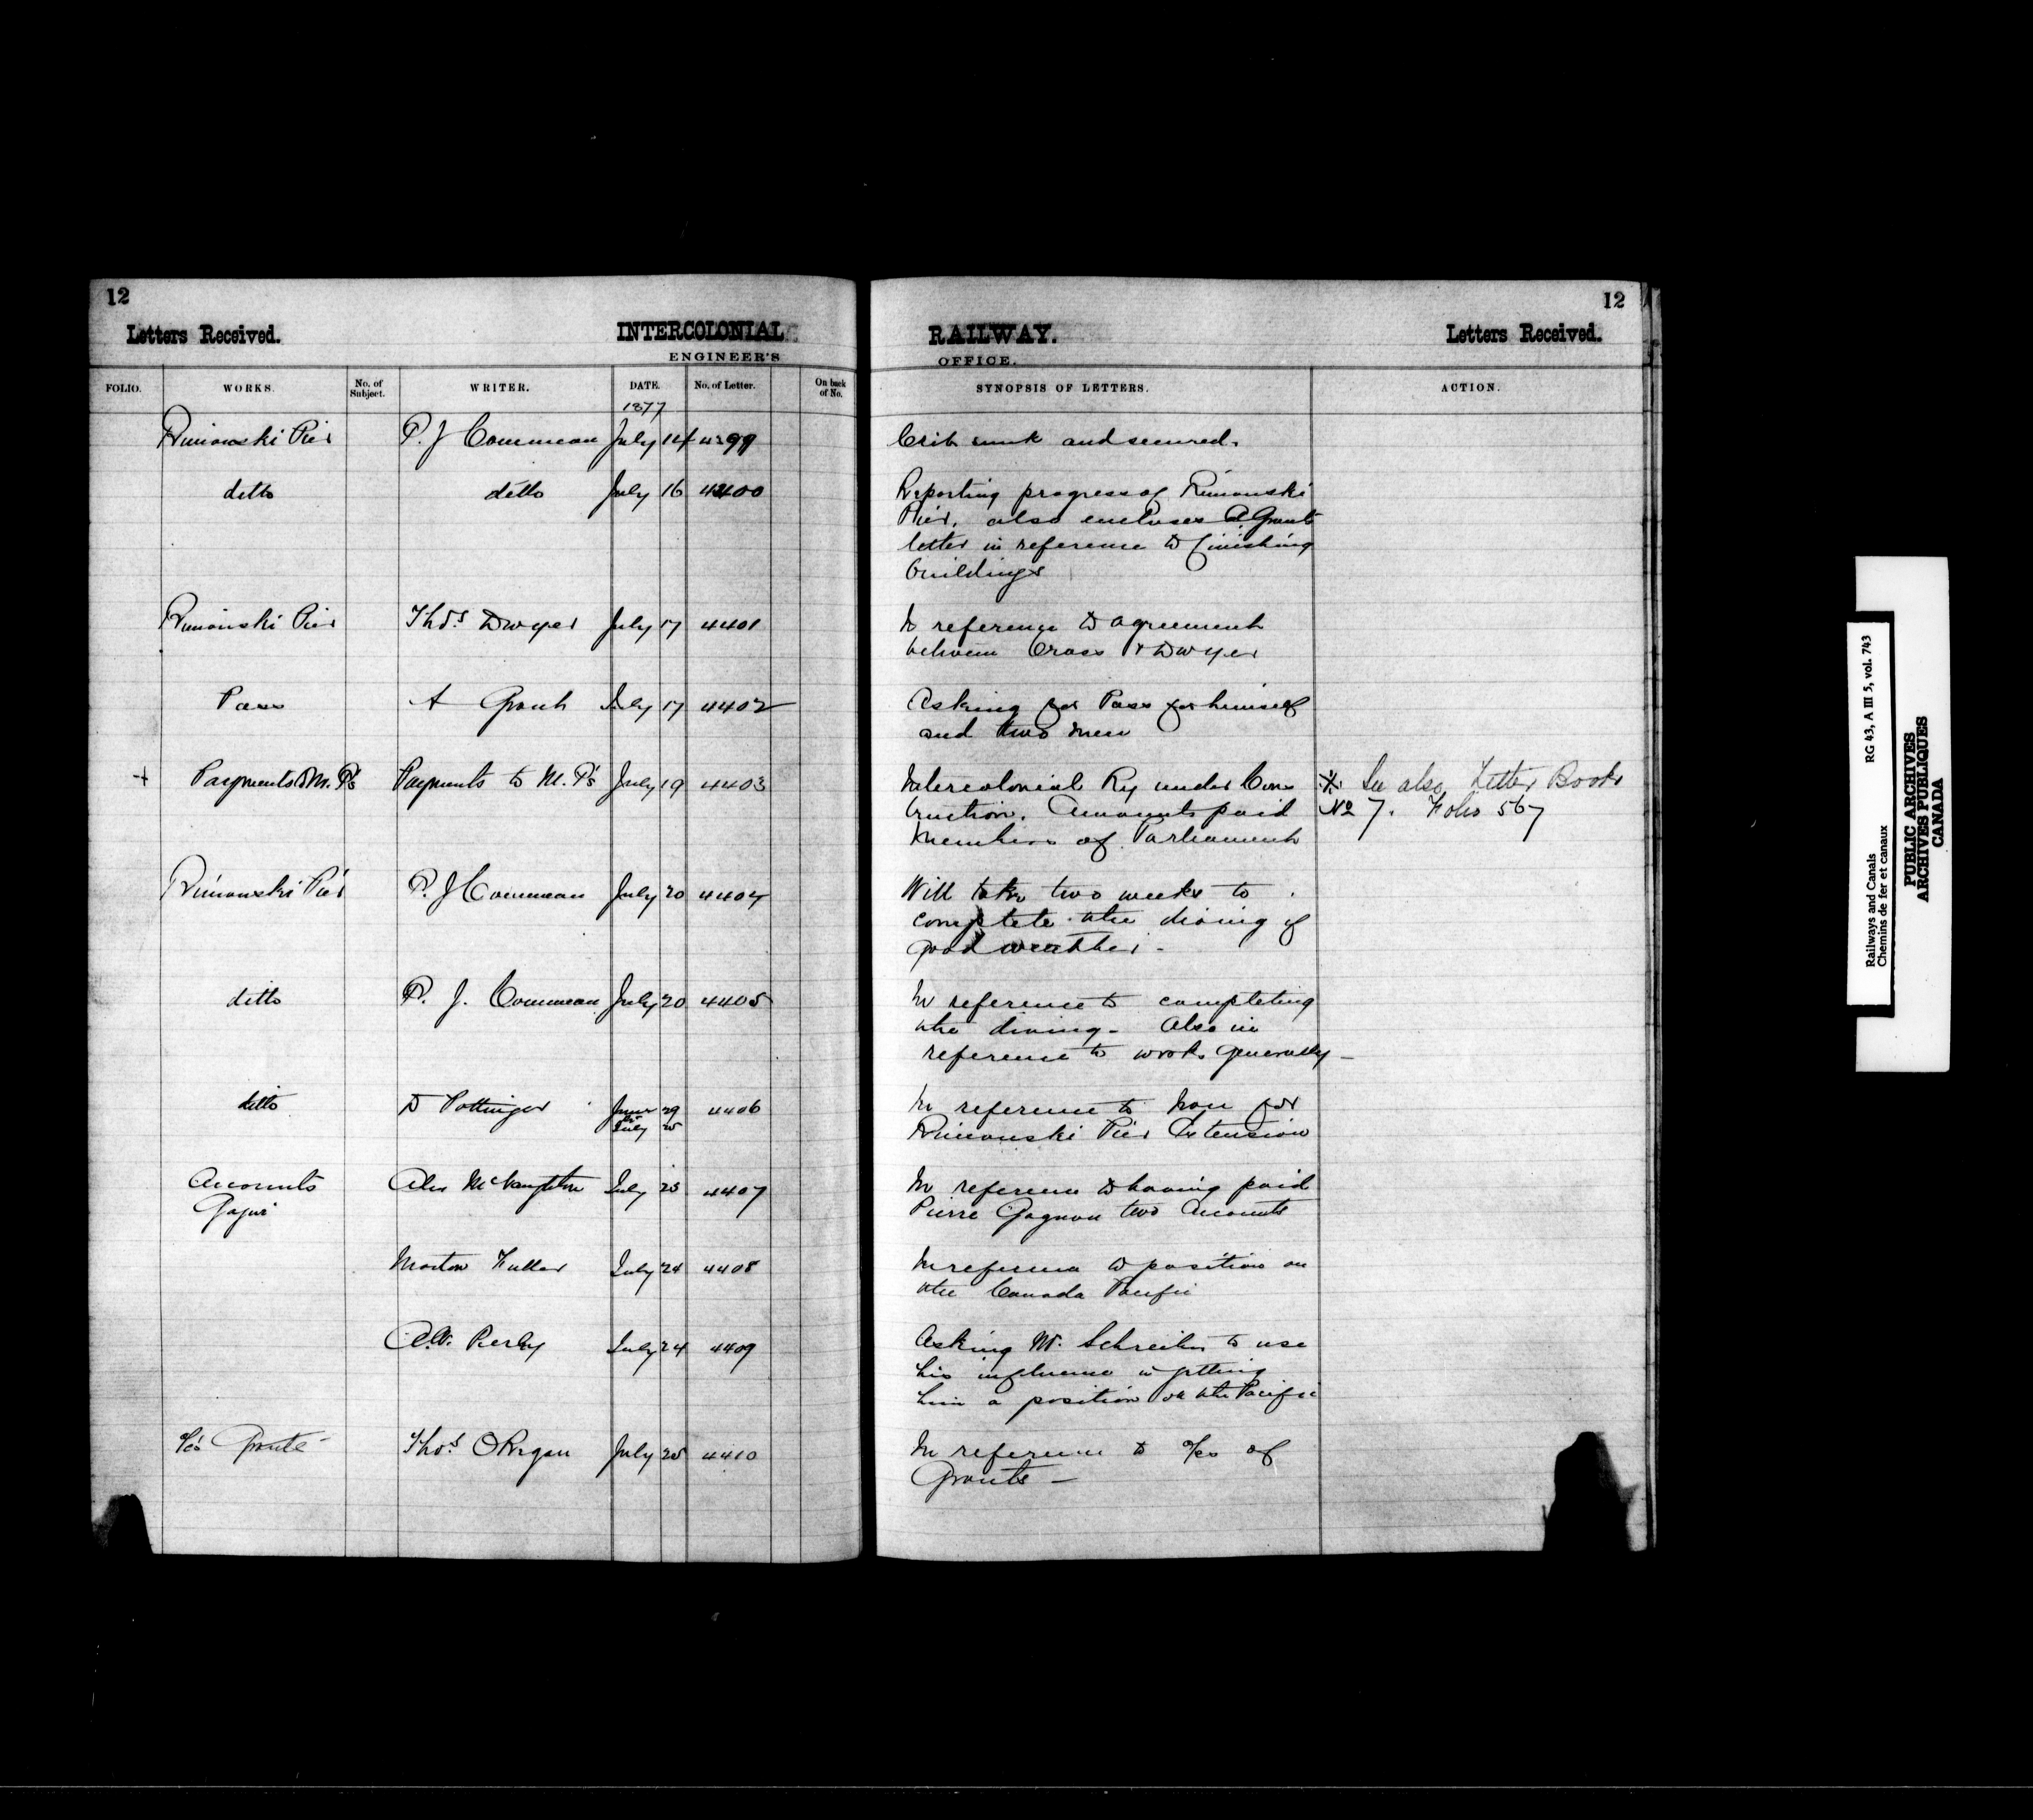 12
12
Letters Received. INTERCOLONIAL RAILWAY. Letters Received.
ENGINEER'S OFFICE.
FOLIO. WORKS. No. of Subject. WRITER. DATE. No. of Letter. On back of No. SYNOPSIS OF LETTERS. ACTION.
1877
Rimouski Pier P. J Commeau July 14 4399 Crib sunk and secured.
ditto ditto July 16 4400 Reporting progress of Rimouski
Pier. also encloses A. Grant's
letter in reference to finishing
buildings
Rimouski Pier Thos. Dwyer July 17 4401 In reference to agreement
between Cross & Dwyer
Pass A Grant July 17 4402 Asking for Pass for himself
and two men
+ Payments to M.P's Payments to M.P's July 19 4403 Intercolonial Ry under Cons ※ See also Letter Book
truction. Amounts paid No 7. Folio 567
Members of Parliament
Rimouski Pier P. J Commeau July 20 4404 Will take two weeks to
complete the diving if
good weather -
ditto P. J. Commeau July 20 4405 In reference to completing
the diving - Also in
reference to works generally -
ditto D Pottinger June 29 4406 In reference to Iron for
to
July Rimouski Pier Extension
Accounts Alex McNaughton July 23 4407 In reference to having paid
Pierre Gagnon two Accounts
Morton Fuller July 24 4408 In reference to position on
the Canada Pacific
July 24 4409 Asking Mr. Schreiber to use
his influence in getting
him a position on the Pacific
Grants Thos. O'Regan July 25 4410 In reference to a/cs of
Grants -
Railways and Canals RG 43, A III 5, vol. 743
Chemins de fer et canaux
PUBLIC ARCHIVES
ARCHIVES PUBLIQUES
CANADA